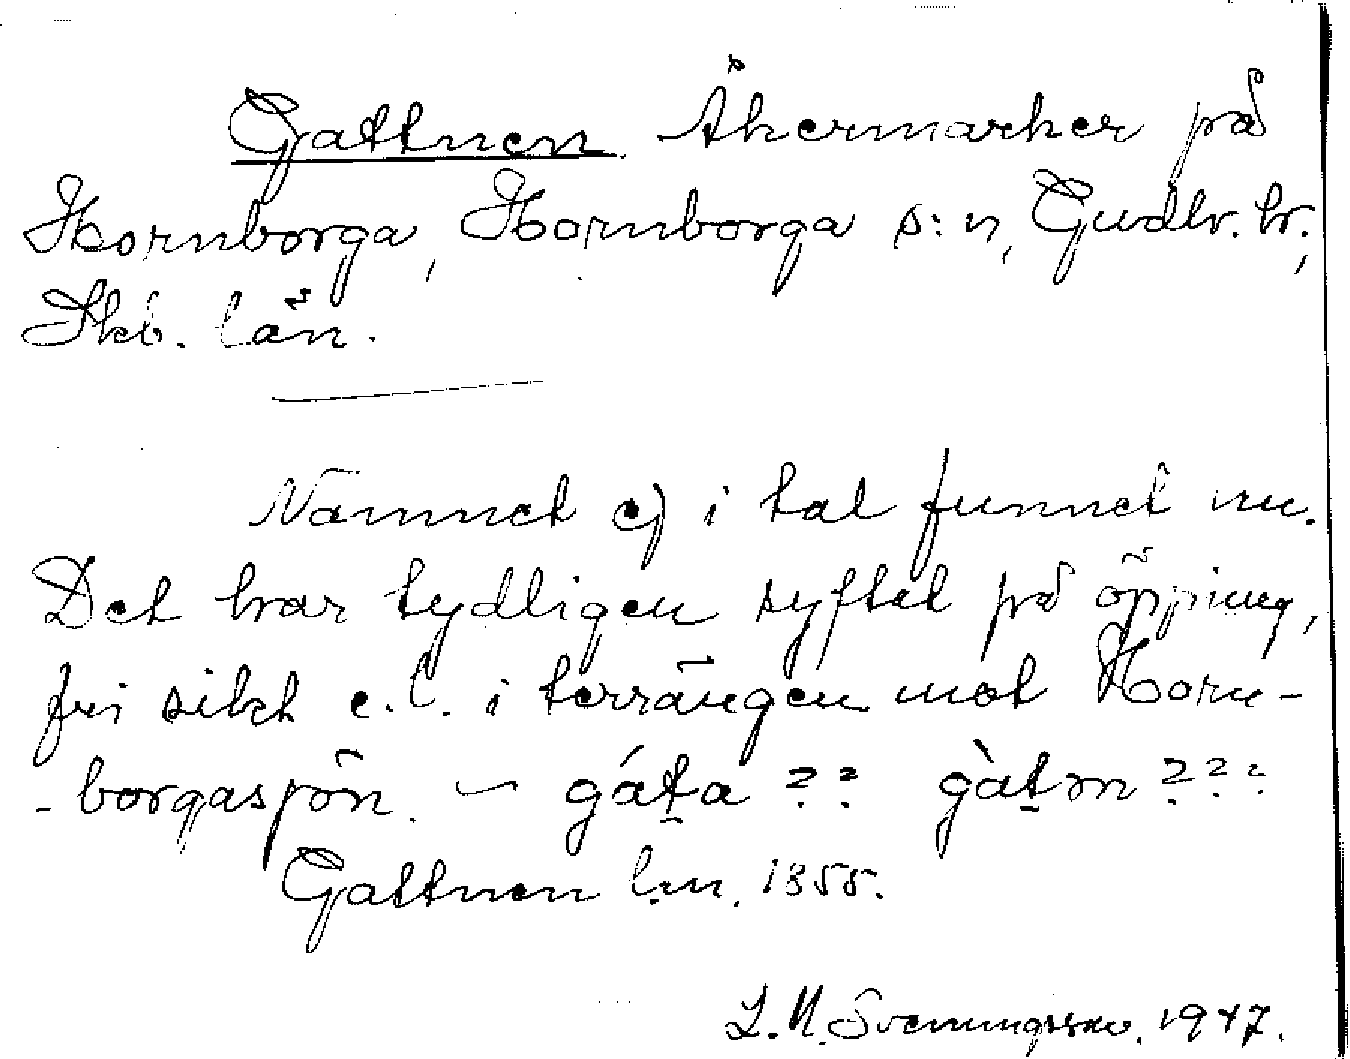 Gattnen. Åkermarker på
Hornborga, Hornborga s:n, Gudh. hr.,
Skb. län.
Namnet ej i tal funnet nu.
Det har tydligen syftat på öppning,
fri sikt e.l. i terrängen mot Horn-
-borgasjön. – gáta ?? gàtm ???
Gattnen l.m. 1855.
L.M. Svenungsson. 1947.